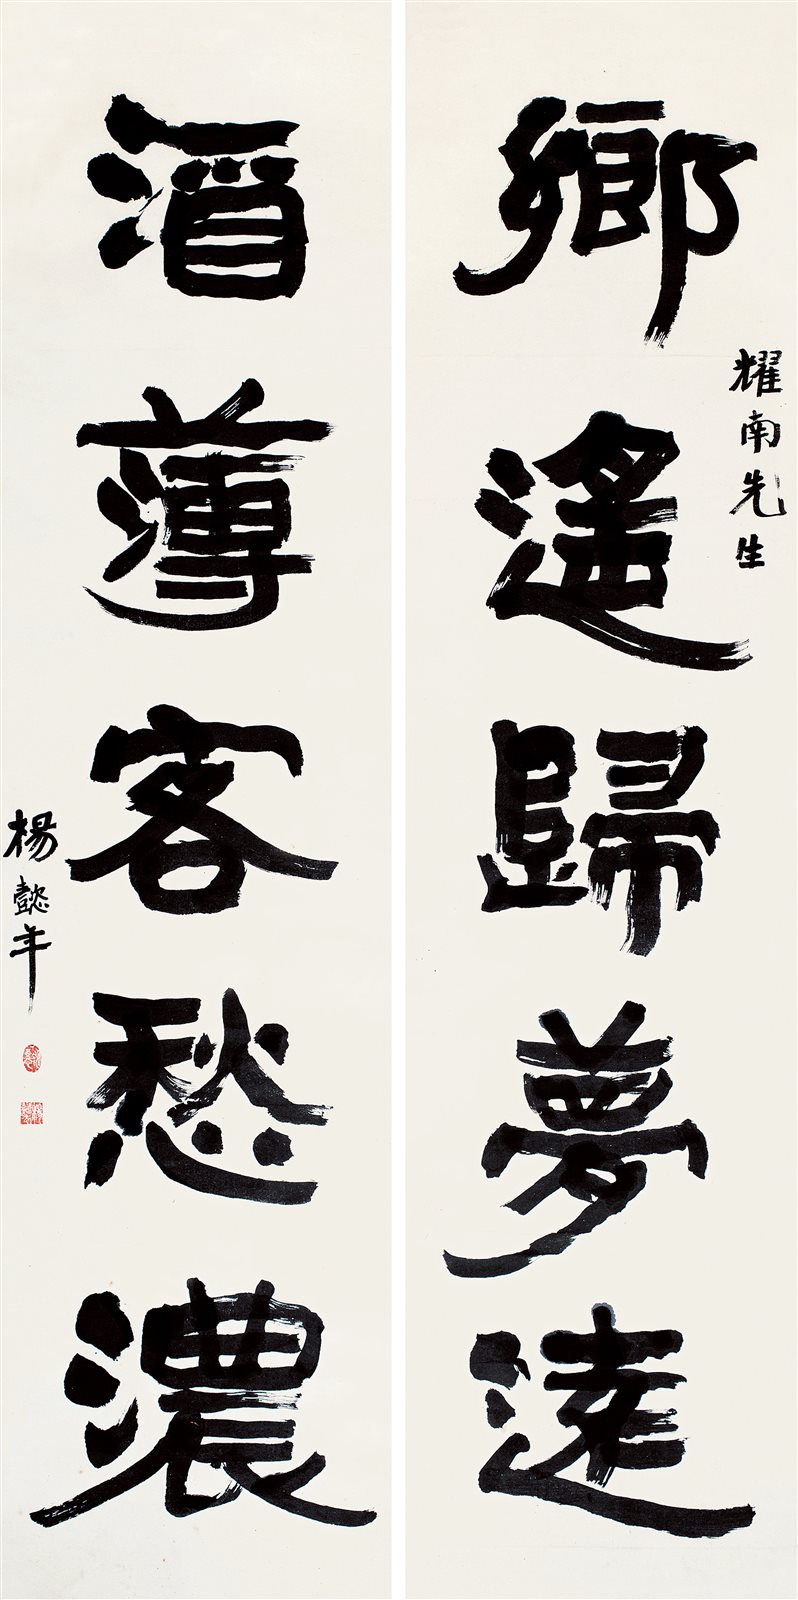 鄉遙歸夢遠
耀南先生
酒薄客愁濃
楊懿年